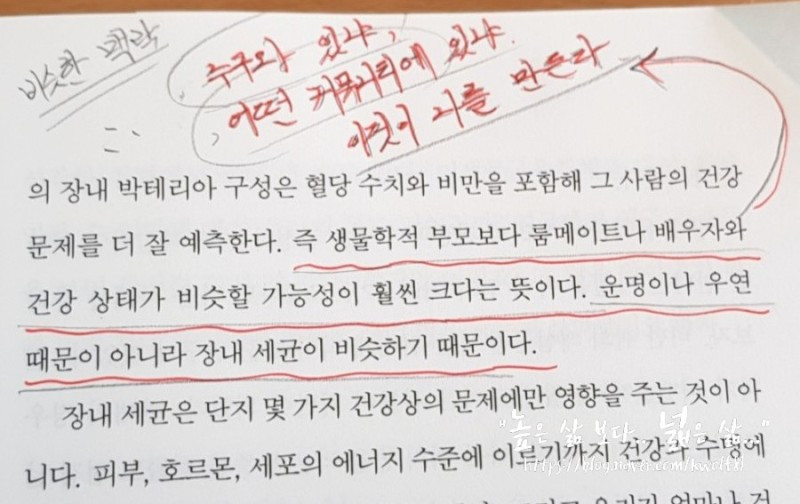 비슷한 맥락
누구와 있냐,
어떤 커뮤니티에 있냐.
이것이 나를 만든다
의 장내 박테리아 구성은 혈당 수치와 비만을 포함해 그 사람의 건강
문제를 더 잘 예측한다. 즉 생물학적 부모보다 룸메이트나 배우자와
건강 상태가 비슷할 가능성이 훨씬 크다는 뜻이다. 운명이나 우연
때문이 아니라 장내 세균이 비슷하기 때문이다.
장내 세균은 단지 몇 가지 건강상의 문제에만 영향을 주는 것이 아
니다. 피부, 호르몬, 세포의 에너지 수준에 이르기까지 건강과 수명에
"높은 삶 보다.. 넓은 삶.."